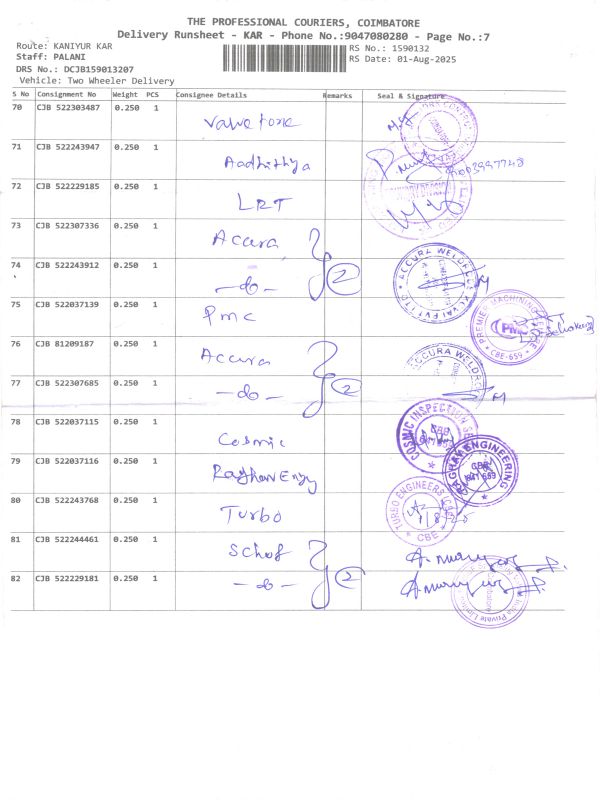 THE PROFESSIONAL COURIERS, COIMBATORE
Delivery Runsheet - KAR - Phone No.:9047080280 - Page No.:7
Route: KANIYUR KAR
RS No.: 1590132
Staff: PALANI
RS Date: 01-Aug-2025
DRS No.: DCJB159013207
Vehicle: Two Wheeler Delivery
S No Consignment No Weight PCS Consignee Details Remarks Seal & Signature
70 CJB 522303487 0.250 1
71 CJB 522243947 0.250 1 Aadhithya
72 CJB 522229185 0.250 1 LRT
73 CJB 522307336 0.250 1 Accura
74 CJB 522243912 0.250 1 -do- 2
ACCURA WELDROD
75 CJB 522037139 0.250 1 Pmc
PREMIER MACHINING CENTRE
PMC
CBE-659
76 CJB 81209187 0.250 1 Accura
77 CJB 522307685 0.250 1 -do- 2
ACCURA WELDROD
78 CJB 522037115 0.250 1 Cosmic
COSMIC INSPECTION
CBE
79 CJB 522037116 0.250 1 Raghav Engg
RAGHAV ENGINEERING
CBE
641 659
80 CJB 522243768 0.250 1 Turbo
TURBO ENGINEERS
CBE
81 CJB 522244461 0.250 1
82 CJB 522229181 0.250 1 -do- 2
India Private Limited